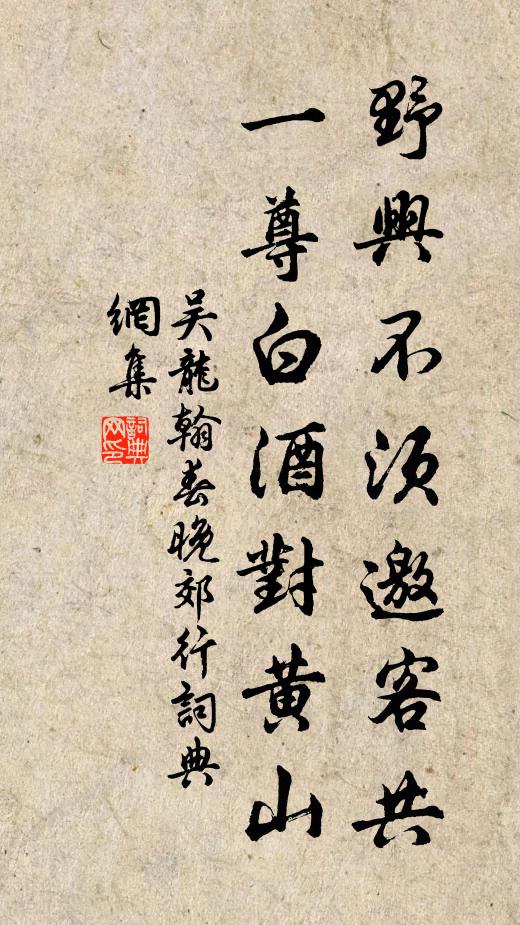 野興不須邀客共
一尊白酒對黄山
吴龍翰春晚郊行詞典
網集
詞典网印